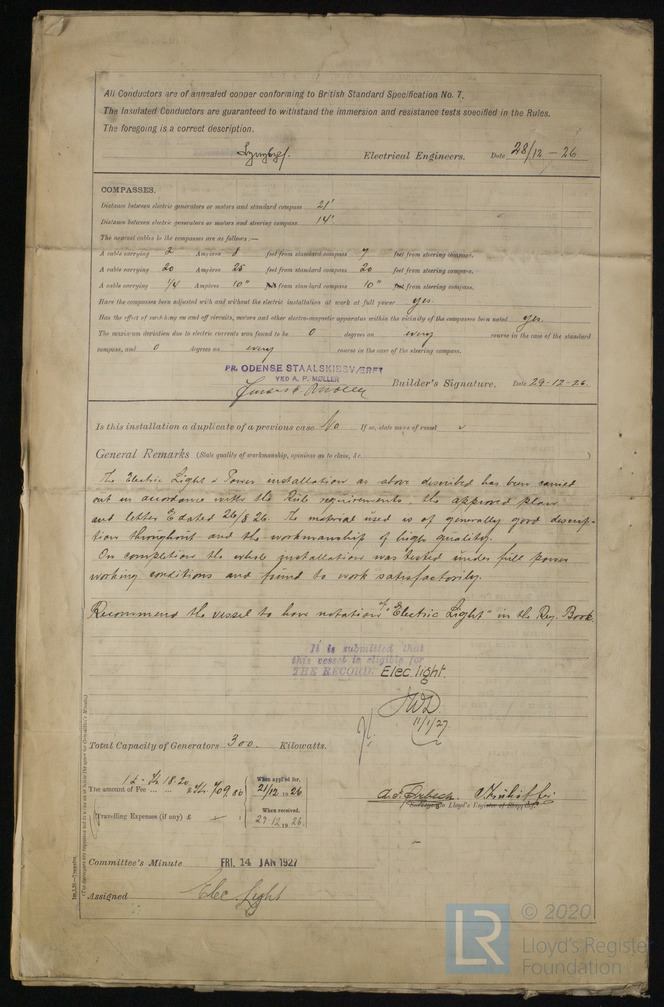 All Conductors are of annealed copper conforming to British Standard Specification No. 7.
The Insulated Conductors are guaranteed to withstand the immersion and resistance tests specified in the Rules.
The foregoing is a correct description.
Electrical Engineers. Date 28/12 - 26
COMPASSES.
Distance between electric generators or motors and standard compass 21'
Distance between electric generators or motors and steering compass 14'
The nearest cables to the compasses are as follows:—
A cable carrying 2 Ampères 8 feet from standard compass 7 feet from steering compass.
A cable carrying 20 Ampères 25 feet from standard compass 20 feet from steering compass.
A cable carrying 1/4 Ampères 10" from standard compass 10" from steering compass.
Have the compasses been adjusted with and without the electric installation at work at full power yes.
Has the effect of switching on and off circuits, motors and other electro-magnetic apparatus within the vicinity of the compasses been noted yes.
The maximum deviation due to electric currents was found to be 0 degrees on every course in the case of the standard
compass, and 0 degrees on every course in the case of the steering compass.
PR. ODENSE STAALSKIBSVÆRFT
VED A. P. MØLLER
Builder's Signature. Date 29-12-26.
Is this installation a duplicate of a previous case No If so, state name of vessel
General Remarks (State quality of workmanship, opinions as to class, &c.
The Electric Light & Power installation as above described has been carried
out in accordance with the Rule requirements, the approved plan
and letter E dated 26/8 26. The material used is of generally good descrip-
tion throughout and the workmanship of high quality.
On completion the whole installation was tested under full power
working conditions and found to work satisfactorily.
Recommend the vessel to have notation of "Electric Light" in the Reg. Book.
It is submitted that
this vessel is eligible for
THE RECORD. Elec. light.
11/1/27
Total Capacity of Generators 300. Kilowatts.
The amount of Fee ... ...
When applied for,
21/12 1926
Travelling Expenses (if any) £
When received,
29.12.1926.
Surveyor to Lloyd's Register of Shipping.
Committee's Minute FRI. 14 JAN 1927
Assigned Elec Light
© 2020
LR
Lloyd's Register
Foundation